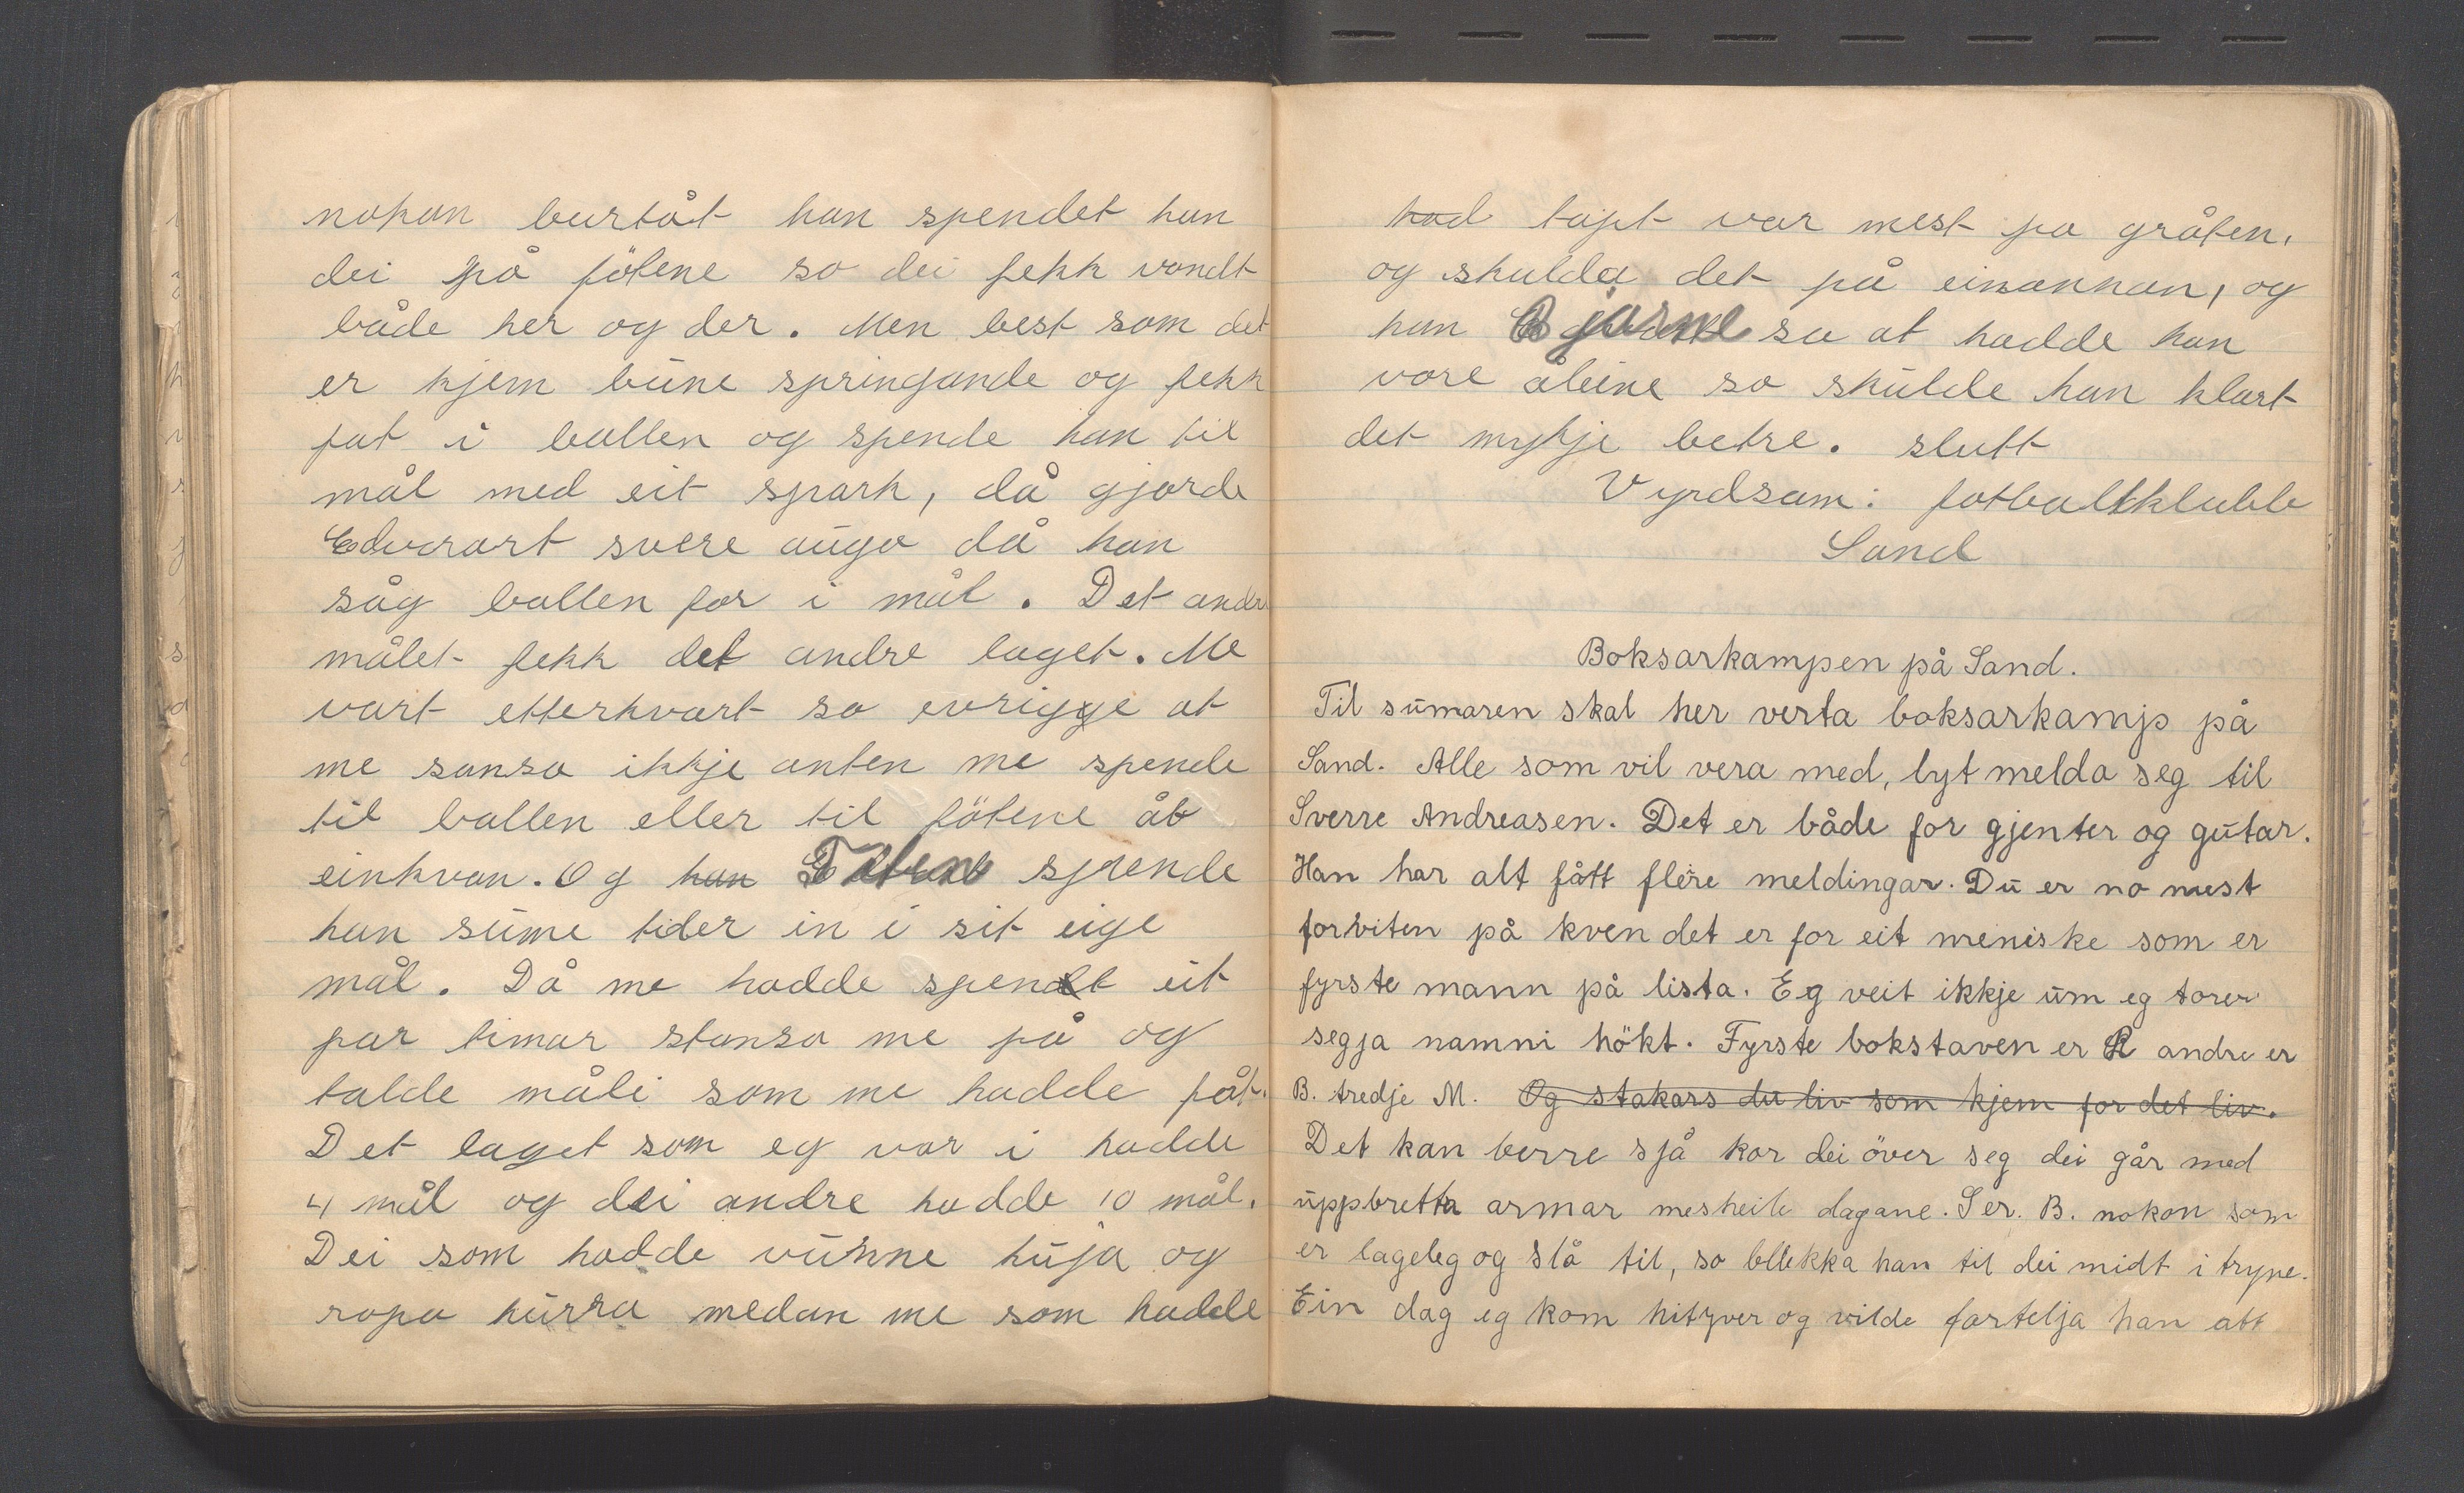 nokon burtåt han spendet han
dei på fötene so dei fekk vondt
både her og der. Men best som det
er kjem büne springande og fekk
fat i ballen og spende han til
mål med eit spark, då gjorde
Edvart svere augo då han
såg ballen for i mål. Det andre
målet fekk det andre laget. Me
vart etterkvart so evrigge at
me sansa ikkje anten me spende
til ballen eller til fötene åt
einkvan. Og han spende
han süme tider in i sit eige
mål. Då me hadde spendt eit
par timar stansa me på og
talde måli som me hadde fåt.
Det laget som eg var i hadde
4 mål og dei andre hadde 10 mål.
Dei som hadde vünne hüja og
ropa hürra medan me som hadde
had tapt var mest på gråten,
og skulda det på einannan, og
han Bjarne sa at hadde han
vore åleine so skülde han klart
det mykje betre. slutt
Vyrdsam: fotballklubb
Sand
Boksarkampen på Sand.
Til sümaren skal her verta boksarkamp på
Sand. Alle som vil vera med, lyt melda seg til
Sverre Andreasen. Det er både for gjenter og gütar.
Han har alt fått fleire meldingar. Dü er no mest
forviten på kven det er for eit meniske som er
fyrste mann på lista. Eg veit ikkje üm eg torer
segja namni hökt. Fyrste bokstaven er R andre er
B. tredje M. Og stakars du liv som kjem for det liv.
Det kan berre sjå kor dei över seg dei går med
üppbretta armar mesheile dagane. Ser. B. nokon som
er lageleg og slå til, so blekka han til dei midt i tryne.
Ein dag eg kom hityver og vilde fortelja han att